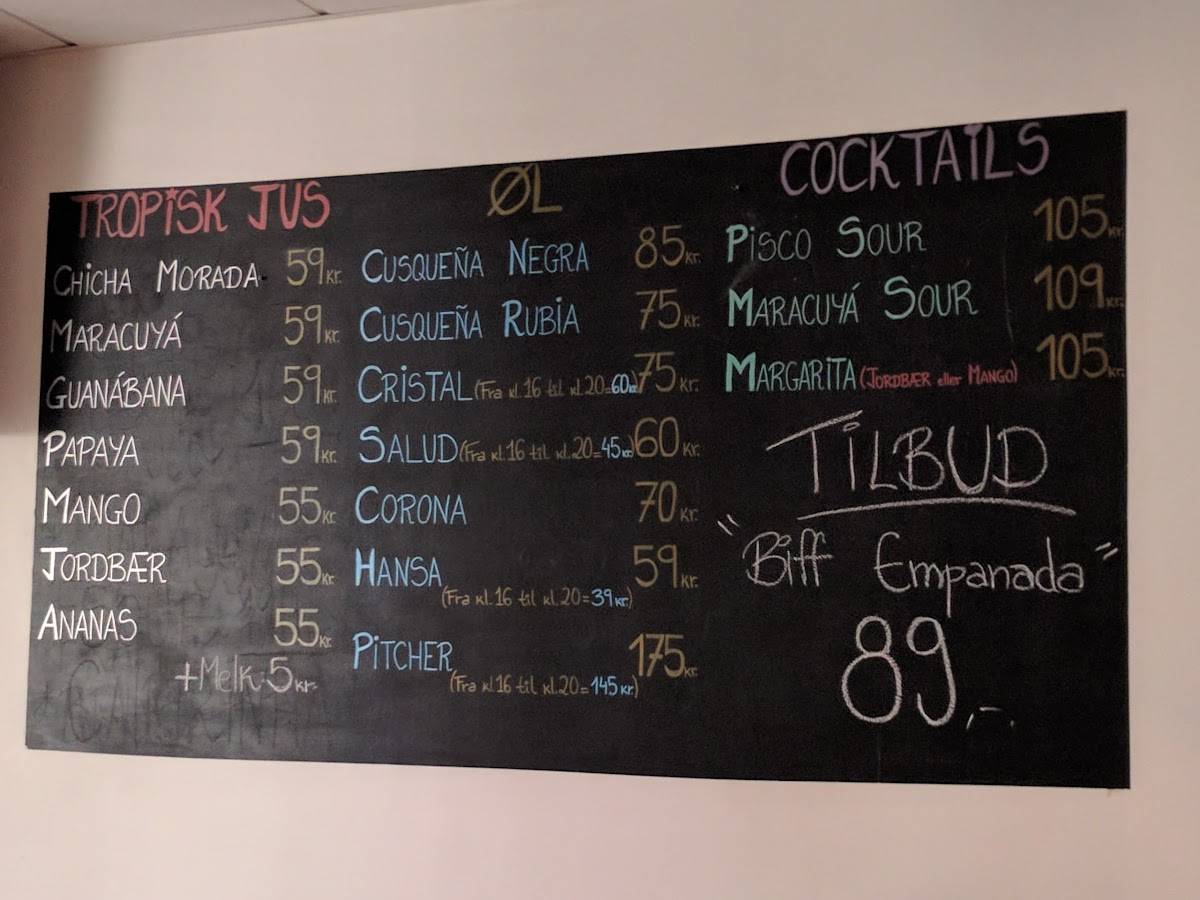 TROPiSK JUS
CHiCHA MORADA 59 KR.
MARACUYÁ 59 KR.
GUANÁBANA 59 KR.
PAPAYA 59 KR.
MANGO 55 KR.
JORDBÆR 55 KR.
ANANAS 55 KR.
+Melk 5 KR.
ØL
CUSQUEÑA NEGRA 85 KR.
CUSQUEÑA RUBiA 75 KR.
CRiSTAL (Fra kl.16 til kl.20=60kr) 75 KR.
SALUD (Fra kl.16 til kl.20=45kr) 60 KR.
CORONA 70 KR.
HANSA 59 KR.
(Fra kl.16 til kl.20=39 KR.)
PiTCHER 175 KR.
(Fra kl.16 til kl.20=145 KR.)
COCKTAiLS
PiSCO SOUR 105 KR.
MARACUYÁ SOUR 109 KR.
MARGARiTA (JORDBÆR eller MANGO) 105 KR.
TiLBUD
"Biff Empanada"
89,-